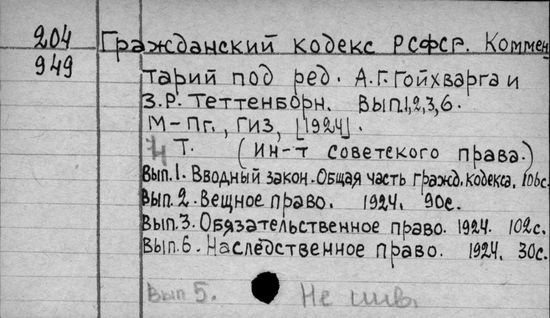 204 Гражданский кодекс РСФСР. Коммен
949 тарий под ред. А.Г.Гойхварга и
З.Р. Теттенборн. Вып.1,2,3,6.
М-Пг., ГИЗ, [1924].
4 Т. (Ин-т советского права.)
Вып.1. Вводный закон. Общая часть гражд. кодекса. 106с.
Вып.2. Вещное право. 1924. 90с.
Вып.3. Обязательственное право. 1924. 102с.
Вып.6. Наследственное право. 1924. 30с.
Вып 5. Не инв.